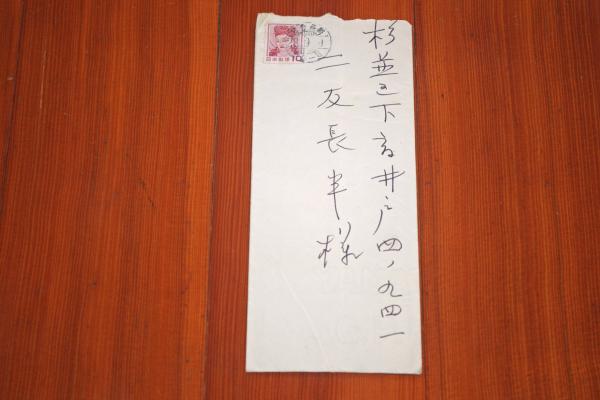 杉並区下高井戸四ノ九四一
三友長半様
日本郵便
10